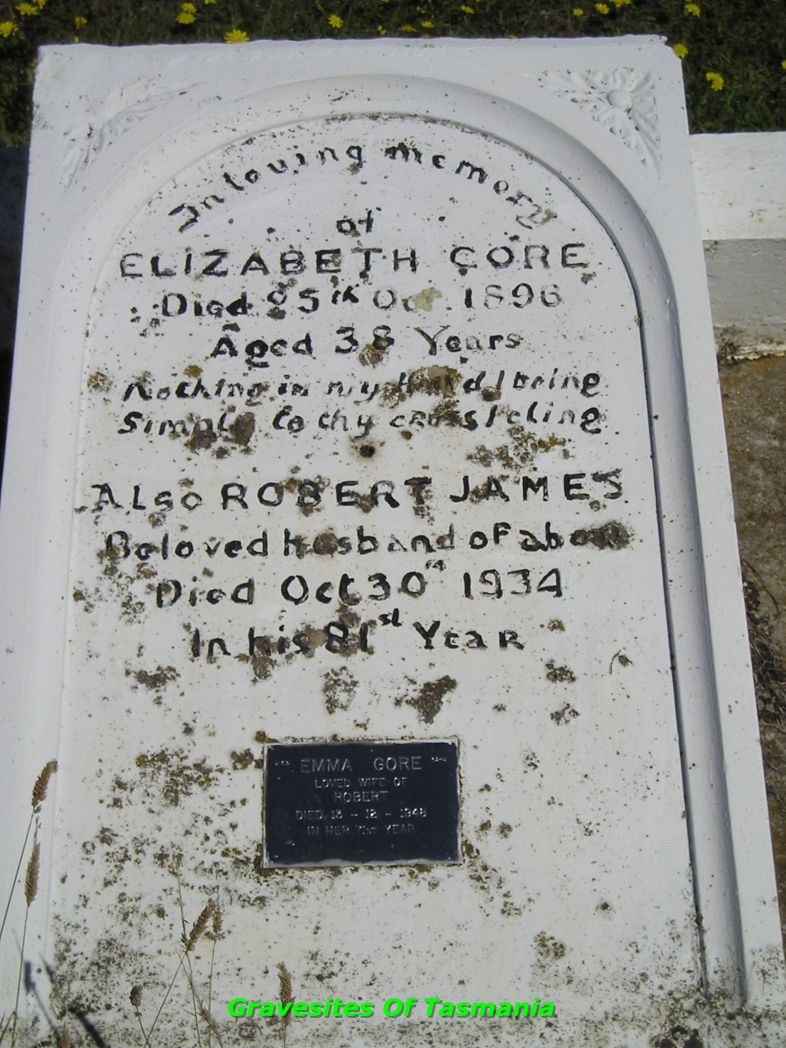 In loving memory
of
ELIZABETH GORE
Died 25th Oct 1896
Aged 38 Years
Nothing in my Hand I bring
Simply to thy cross I cling
Also ROBERT JAMES
Beloved husband of above
Died Oct 30th 1934
In his 81st YEAR
EMMA GORE
LOVED WIFE OF
ROBERT
DIED 13 - 12 - 1948
IN HER YEAR
Gravesites Of Tasmania